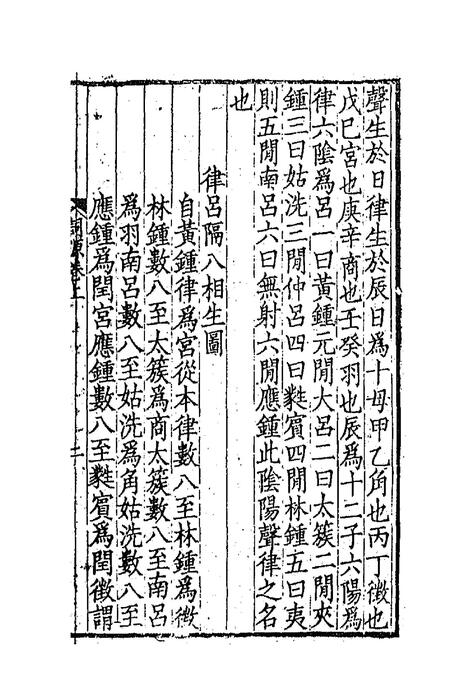 聲生於日律生於辰日爲十母甲乙角也丙丁徵也
戊巳宮也庚辛商也壬癸羽也辰爲十二子六陽爲
律六陰爲呂一曰黃鍾元閒大呂二曰太簇二閒夾
鍾三曰姑洗三閒仲呂四曰蕤賓四閒林鍾五曰夷
則五閒南呂六曰無射六閒應鍾此陰陽聲律之名
也
律呂隔八相生圖
自黃鍾律爲宮從本律數八至林鍾爲徵
林鍾數八至太簇爲商太簇數八至南呂
爲羽南呂數八至姑洗爲角姑洗數八至
應鍾爲閏宮應鍾數八至蕤賓爲閏徵謂
詞源卷上
二